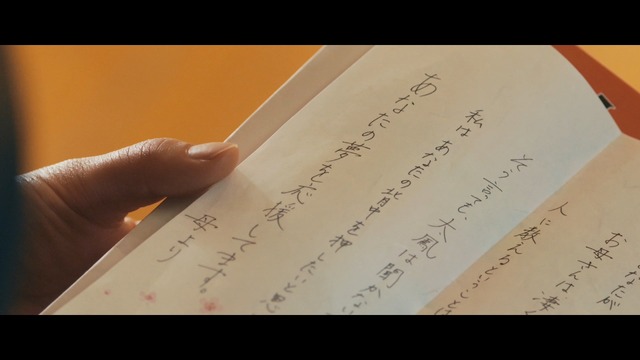 なたが
お母さんは凄
人に教えるということは
そう言っても、大鳳は聞かない
私はあなたの背中を押したいと思
あなたの夢を応援してます。
母より